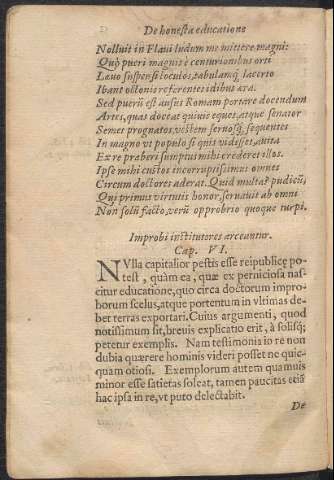 De honesta educatione
Nolluit in Flavi ludum me mittere magni:
Quò pueri magnis è centurionibus orti
Lævo suspensi loculos, tabulamq́; lacerto
Ibant octonis referentes idibus æra.
Sed puerū est ausus Romam portare docendum
Artes, quas doceat quiuis eques, atque senator
Semet prognatos, vestem seruosq́; sequentes
In magno vt populo si quis vidisset, auita
Ex re præberi sumptus mihi crederet illos.
Ipse mihi custos incorruptissimus omnes
Circum doctores aderat. Quid multa? pudicū,
Qui primus virtutis honor, seruauit ab omni
Non solū facto, verū opprobrio quoque turpi.
Improbi institutores arceantur.
Cap. VI.
NVlla capitalior pestis esse reipublicę po-
test, quàm ea, quæ ex perniciosa nas-
citur educatione, quo circa doctorum impro-
borum scelus, atque portentum in vltimas de-
bet terras exportari. Cuius argumenti, quod
notissimum sit, breuis explicatio erit, à solisq́;
petetur exemplis. Nam testimonia in re non
dubia quærere hominis videri posset ne quic-
quam otiosi. Exemplorum autem quamuis
minor esse satietas soleat, tamen paucitas etiā
hac ipsa in re, vt puto delectabit.
De